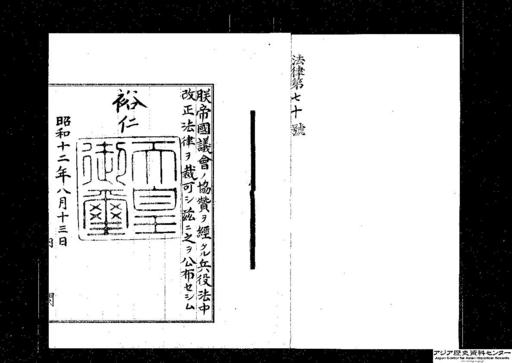 法律第七十號
朕帝國議會ノ協贊ヲ經タル兵役法中
改正法律ヲ裁可シ茲ニ之ヲ公布セシム
裕仁
天皇御璽
昭和十二年八月十三日
アジア歴史資料センター
Japan Center for Asian Historical Records